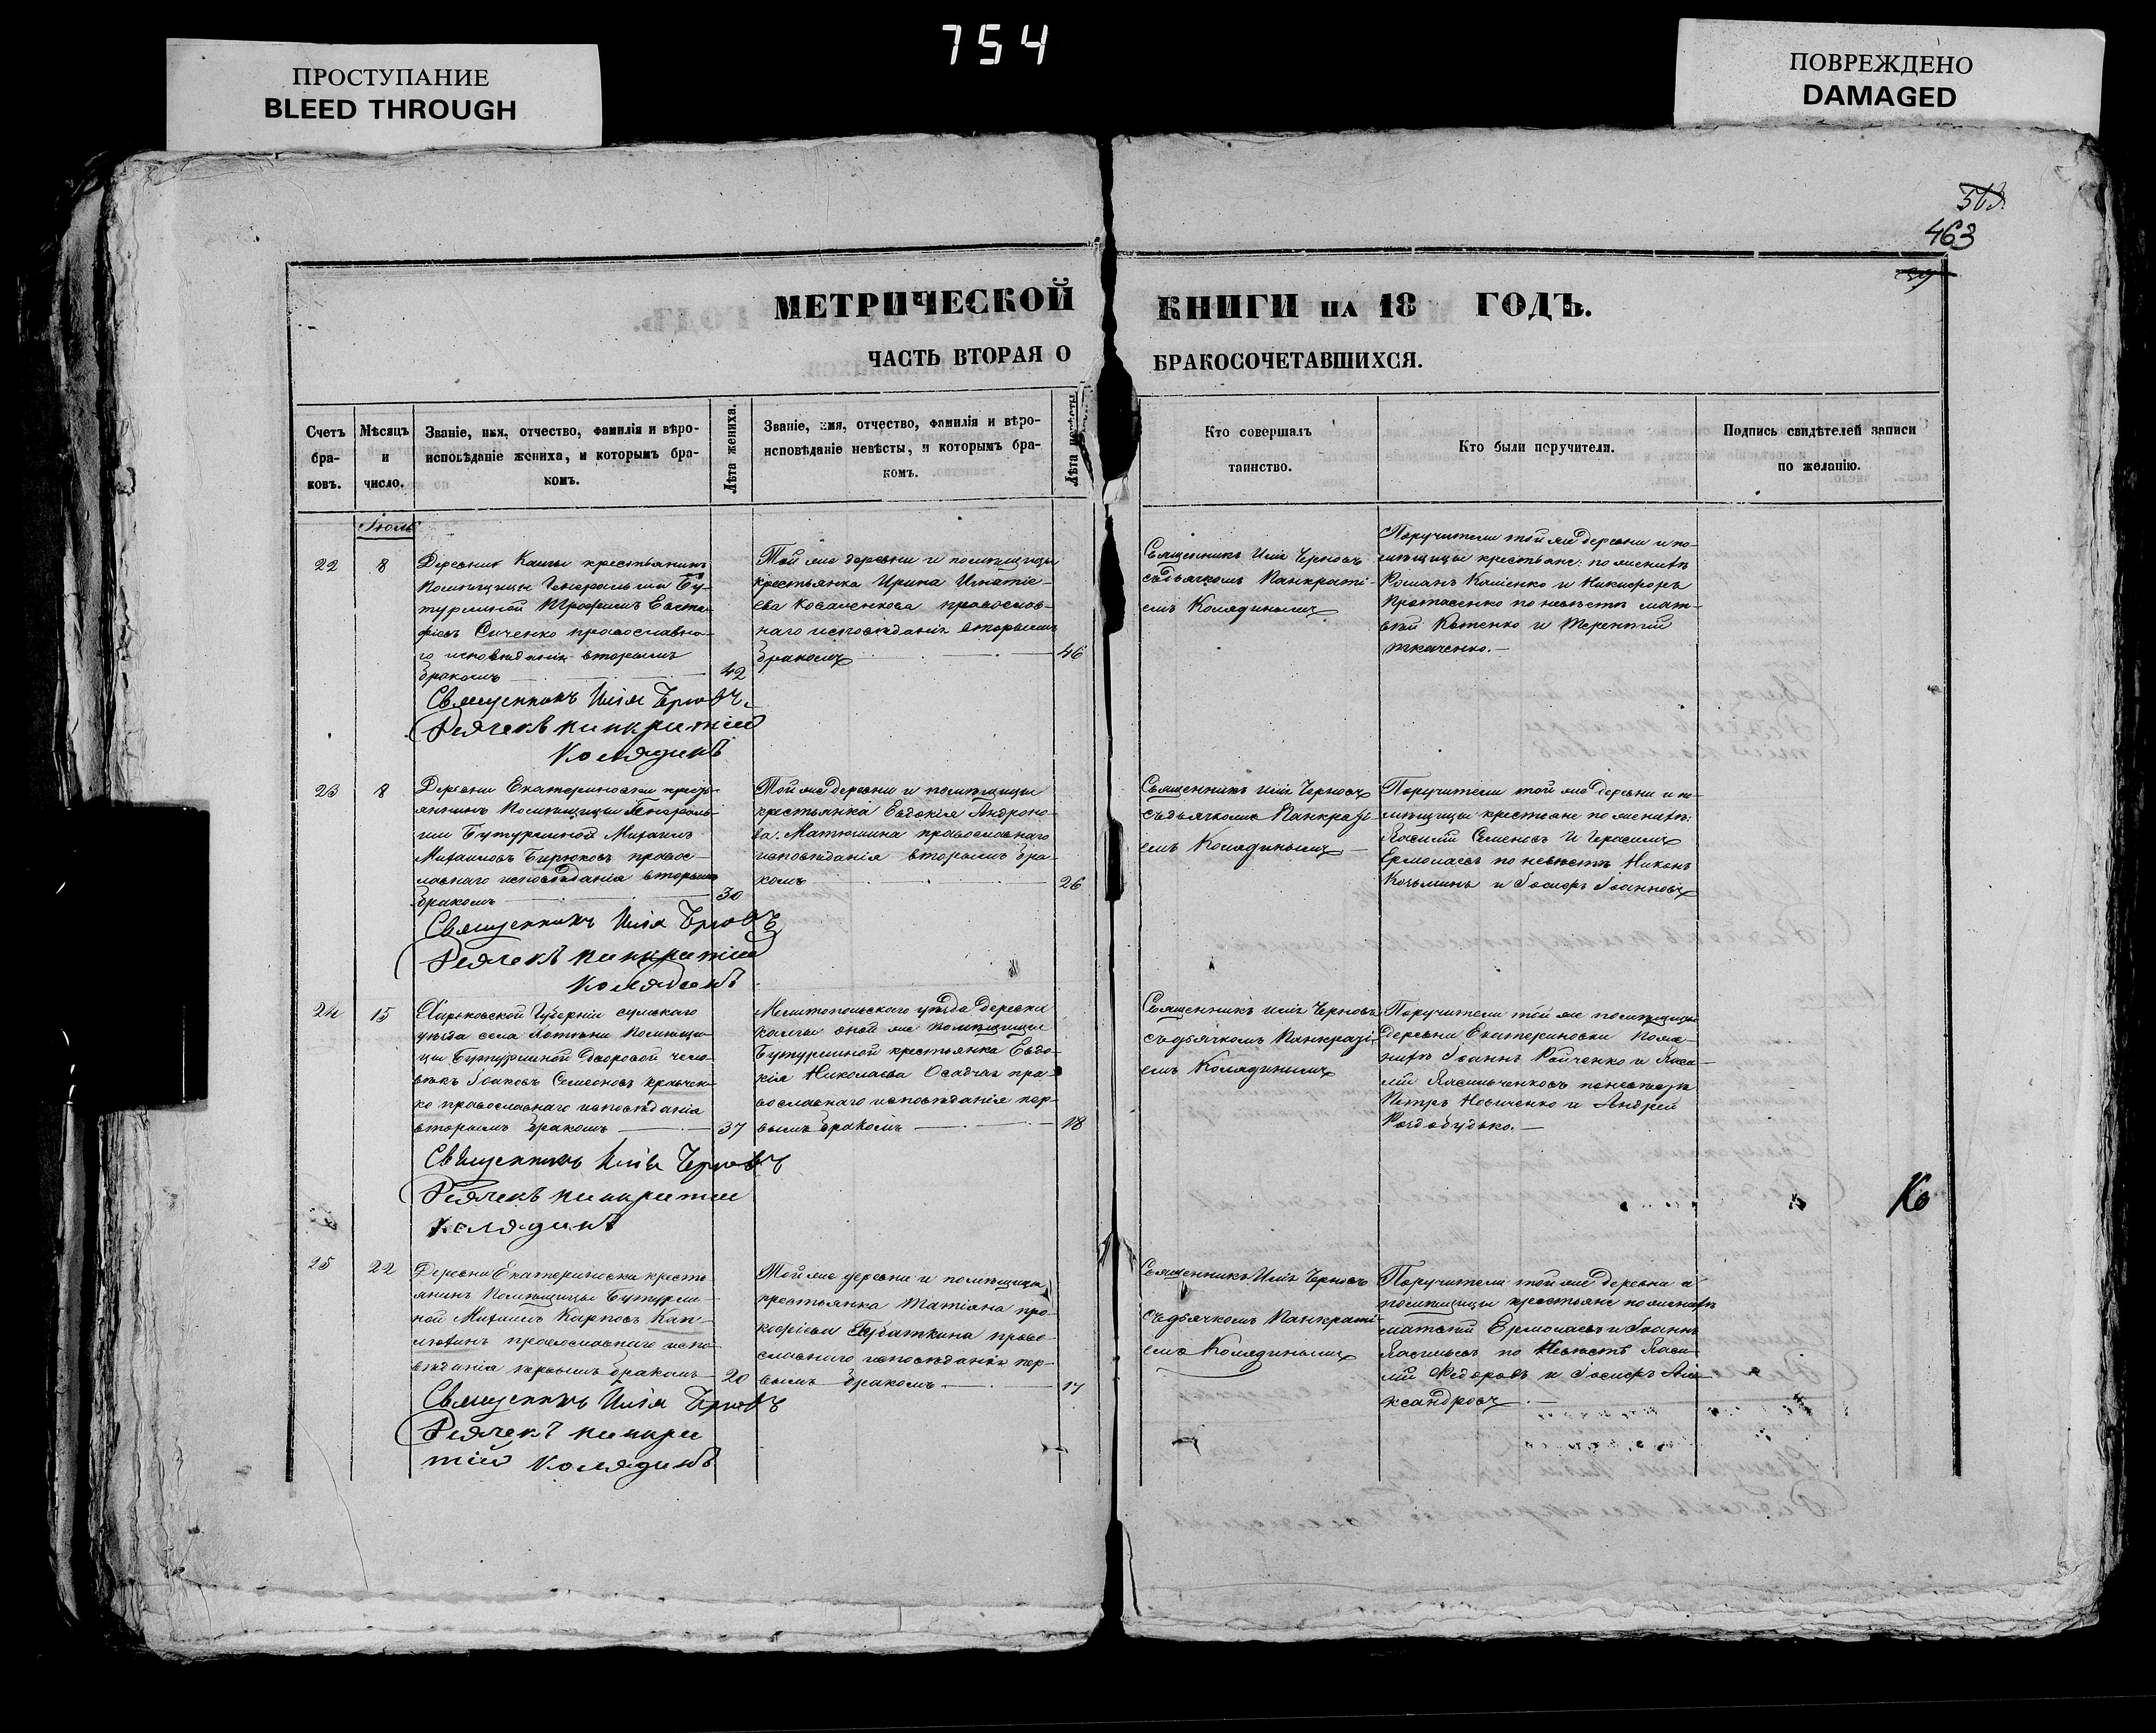 754
ПРОСТУПАНИЕ
BLEED THROUGH
ПОВРЕЖДЕНО
DAMAGED
463
МЕТРИЧЕСКОЙ КНИГИ на 18 ГОДЪ.
ЧАСТЬ ВТОРАЯ О БРАКОСОЧЕТАВШИХСЯ.
Счетъ браковъ.
Мѣсяцъ и число.
Званіе, имя, отчество, фамилія и вѣроисповѣданіе жениха, и которымъ бракомъ.
Лѣта жениха.
Званіе, имя, отчество, фамилія и вѣроисповѣданіе невѣсты, и которымъ бракомъ.
Лѣта невѣсты
Кто совершалъ таинство.
Кто были поручители.
Подпись свидѣтелей записи по желанію.
Іюль
22
8
Деревни Каиры крестьянинъ
Помѣщицы Генеральши Бу-
турлиной Трофимъ Евста-
фіевъ Сиченко православна-
го исповѣданія вторымъ
бракомъ
42
Той же деревни и помѣщицы
крестьянка Ирина Игнатіе-
ва Коваленкова православ-
наго исповѣданія вторымъ
бракомъ
46
Священникъ Илія Черновъ
съ дьячкомъ Панкраті-
емъ Колядинымъ
Поручители той же деревни и по-
мѣщицы крестьяне: по женихѣ
Романъ и Никифоръ
Протасенко по невѣстѣ Мат-
вѣй Котенко и Терентій
Ткаченко.
Священникъ Илія Черновъ
Дьячекъ Панкратій
Колядинъ
23
8
Деревни Екатериновки кресть-
янинъ Помѣщицы Генераль-
ши Бутурлиной Михаилъ
Михаиловъ Бирюковъ правос-
лавнаго исповѣданія вторымъ
бракомъ
30
Той же деревни и помѣщицы
крестьянка Евдокія Андроно-
ва Матюшина православнаго
исповѣданія вторымъ бра-
комъ
26
Священникъ Илія Черновъ
съ дьячкомъ Панкраті-
емъ Колядинымъ
Поручители той же деревни и по-
мѣщицы крестьяне по женихѣ:
Василій Семеновъ и Герасимъ
Ермолаевъ по невѣстѣ Никонъ
Козьминъ и Іосифъ Іоанновъ
Священникъ Илія Черновъ
Дьячекъ Панкратій
Колядинъ
24
15
Харьковской Губерніи Сумскаго
уѣзда села Помѣщи-
цы Бутурлиной дворовой чело-
вѣкъ Іаковъ Семеновъ Кравчен-
ко православнаго исповѣданія
вторымъ бракомъ
37
Мелитопольскаго уѣзда деревни
Каиры оной же помѣщицы
Бутурлиной крестьянка Евдо-
кія Николаева Осадчая пра-
вославнаго исповѣданія пер-
вымъ бракомъ
18
Священникъ Илія Черновъ
съ дьячкомъ Панкраті-
емъ Колядинымъ
Поручители той же помѣщицы
деревни Екатериновки по же-
нихѣ Іоаннъ Райченко и Васи-
лій Васильченковъ по невѣстѣ
Петръ Новиченко и Андрей
Роздобудько.
Священникъ Илія Черновъ
Дьячекъ Панкратій
Колядинъ
Ко
25
22
Деревни Екатериновки кресть-
янинъ Помѣщицы Бутурли-
ной Михаилъ Карповъ Кап-
лютинъ православнаго испо-
вѣданія первымъ бракомъ
20
Той же деревни и помѣщицы
крестьянка Татіана Про-
кофіева Горбаткина право-
славнаго исповѣданія пер-
вымъ бракомъ
17
Священникъ Илія Черновъ
съ дьячкомъ Панкраті-
емъ Колядинымъ
Поручители той же деревни и
помѣщицы крестьяне по женихѣ
Матвѣй Ермолаевъ и Іоаннъ
Васильевъ по невѣстѣ Васи-
лій Федоровъ и Іосифъ Але-
ксандровъ
Священникъ Илія Черновъ
Дьячекъ Панкра
тій Колядинъ